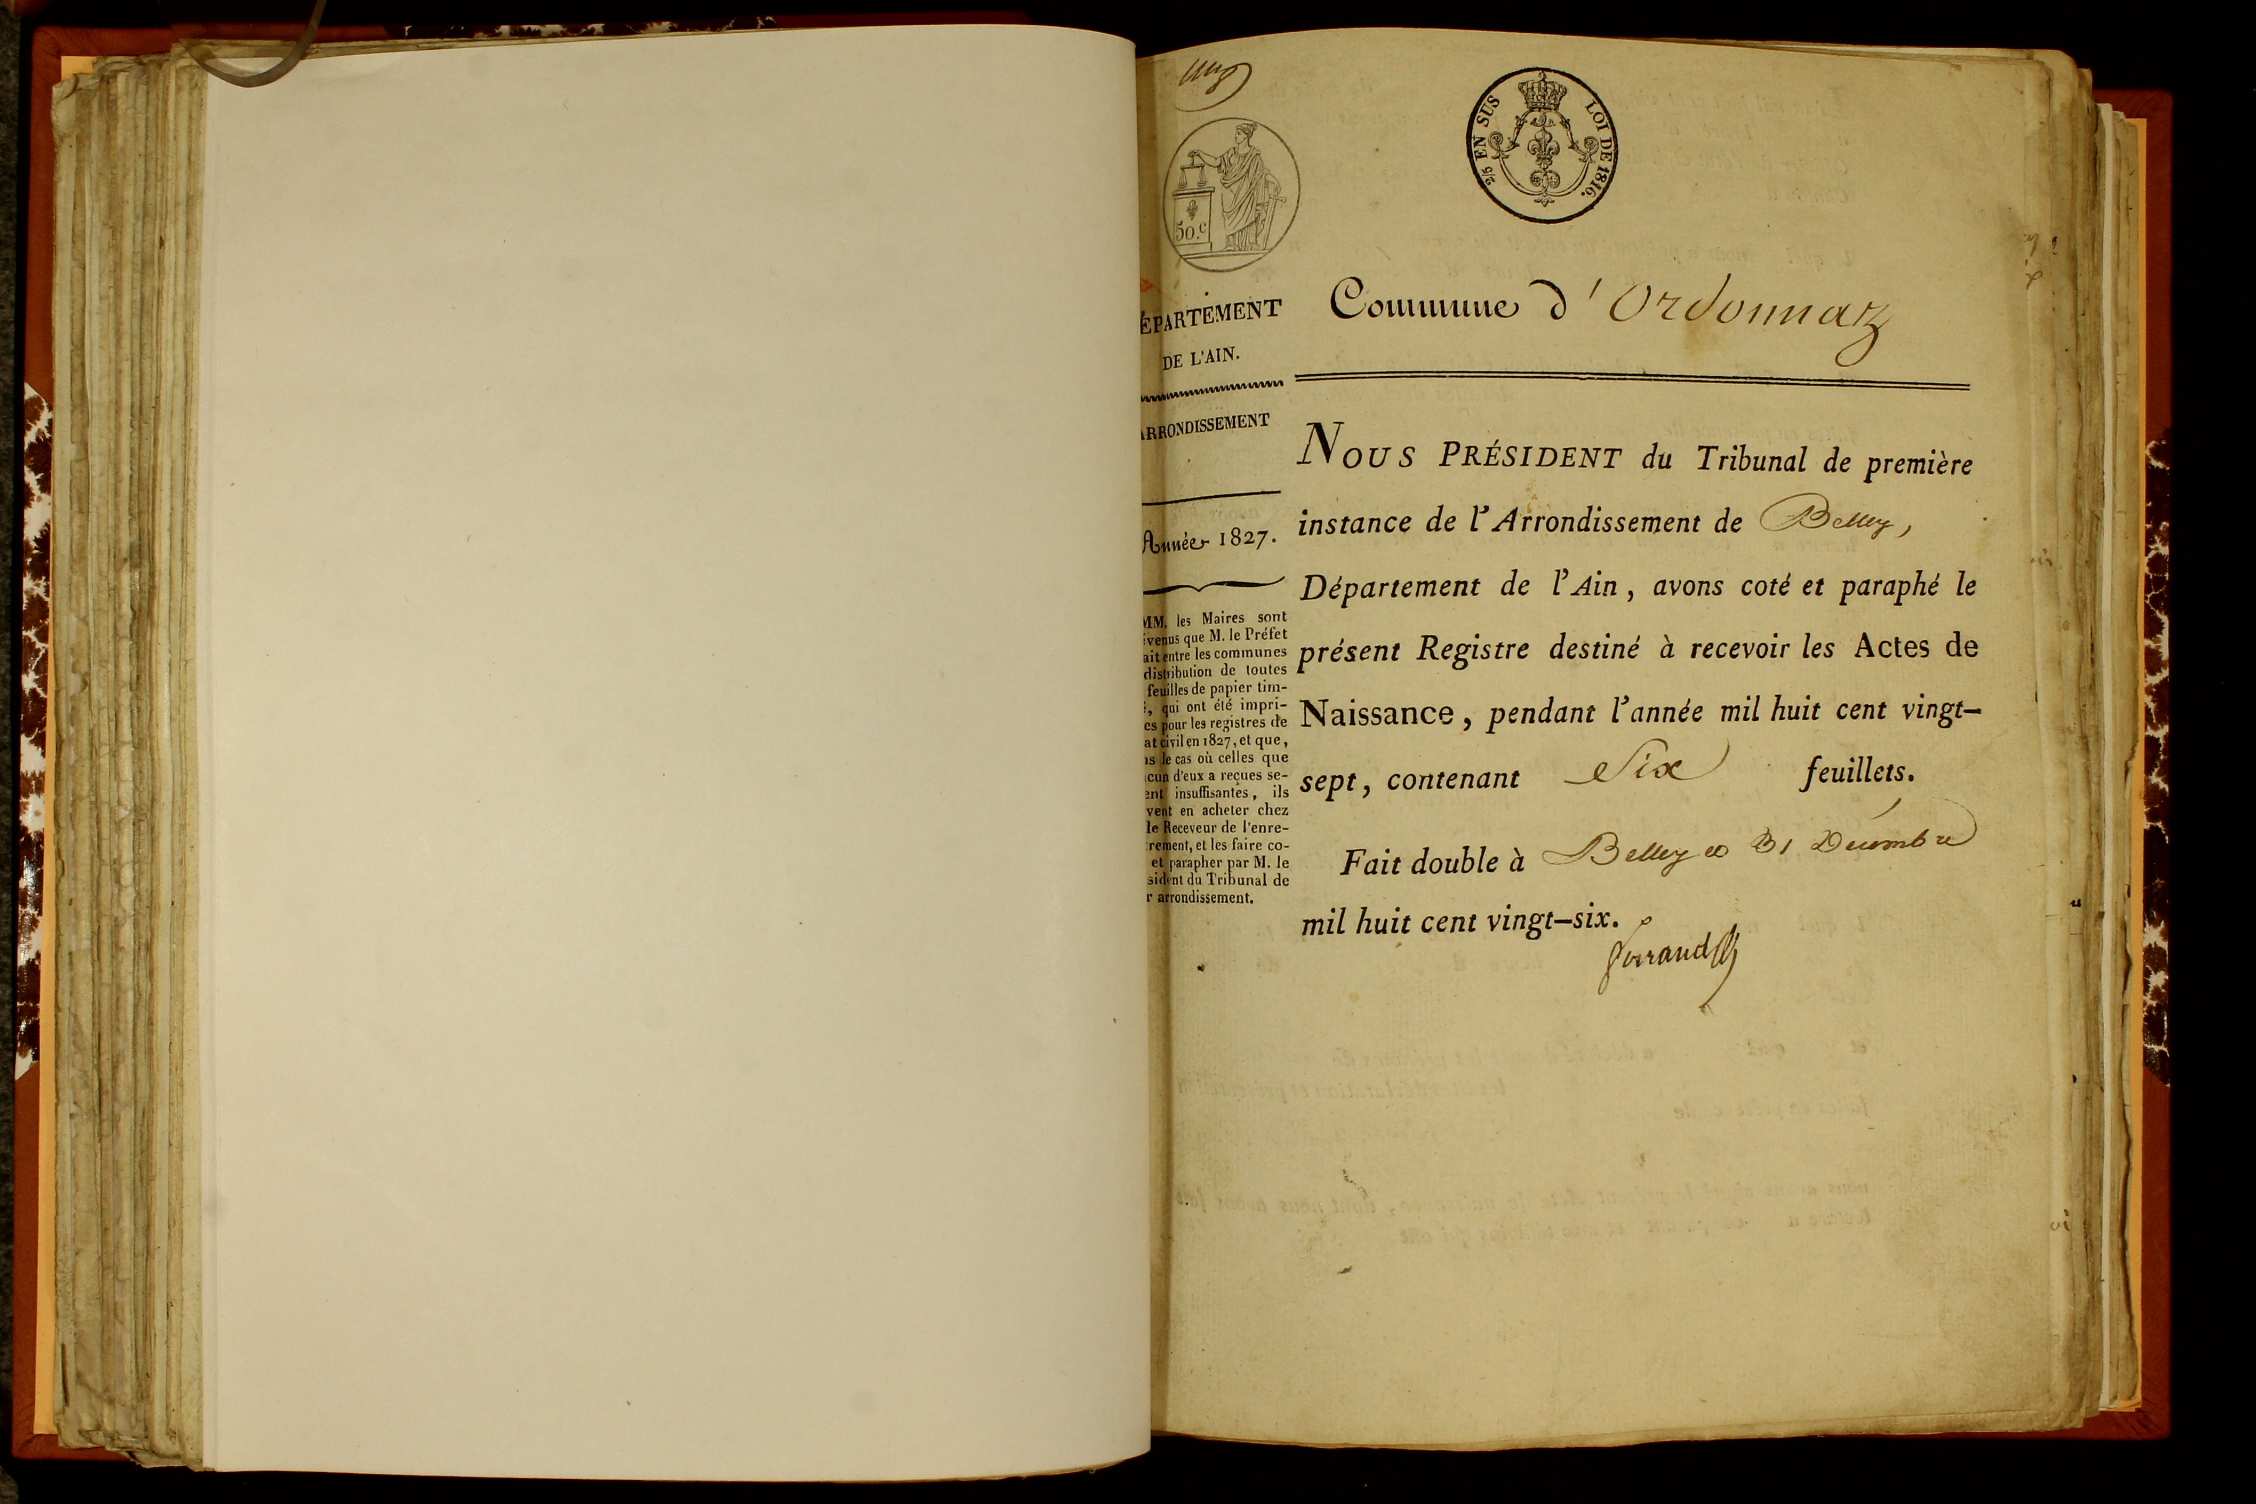 2/5 EN SUS LOI DE 1816.
50.c
ÉPARTEMENT
DE L'AIN.
ARRONDISSEMENT
Année 1827.
MM. les Maires sont
venus que M. le Préfet
ait entre les communes
distribution de toutes
feuilles de papier tim-
, qui ont été impri-
es pour les registres de
at civil en 1827, et que,
s le cas où celles que
cun d'eux a reçues se-
ent insuffisantes, ils
vent en acheter chez
le Receveur de l'enre-
rement, et les faire co-
et parapher par M. le
sident du Tribunal de
r arrondissement.
Commune d'Ordonnaz
NOUS PRÉSIDENT du Tribunal de première
instance de l'Arrondissement de Belley,
Département de l'Ain, avons coté et paraphé le
présent Registre destiné à recevoir les Actes de
Naissance, pendant l'année mil huit cent vingt-
sept, contenant Six feuillets.
Fait double à Belley ce 31 Décembre
mil huit cent vingt-six.